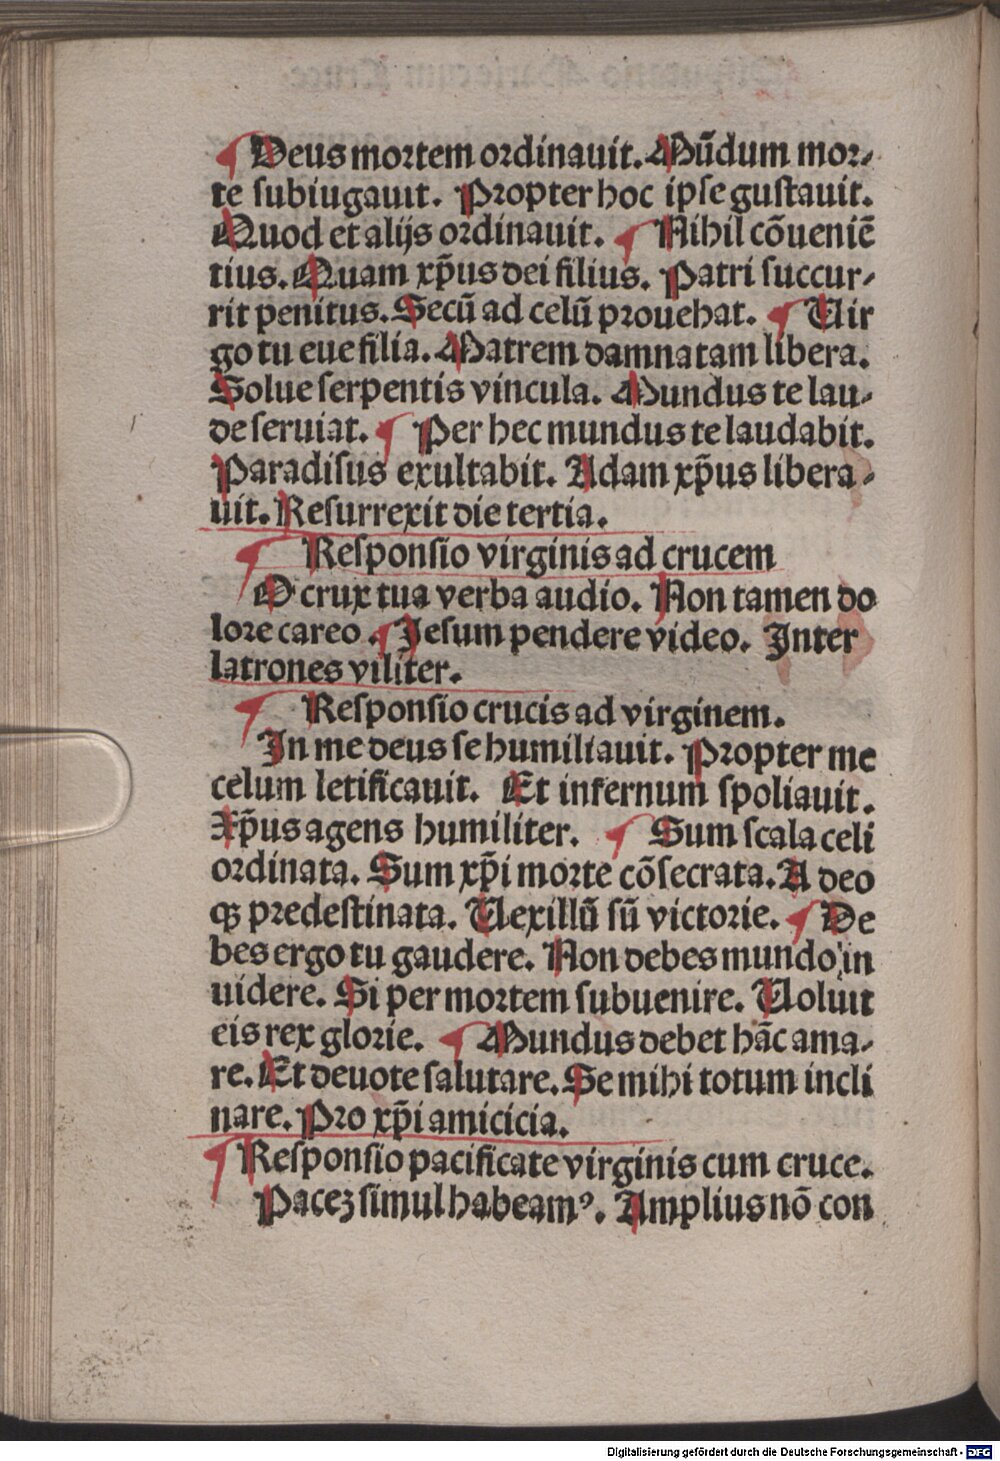 ¶ Deus mortem ordinauit. Mūdum mor-
te subiugauit. Propter hoc ipse gustauit.
Quod et alijs ordinauit. ¶ Nihil cōueniē
tius. Quam xp̄us dei filius. Patri succur-
rit penitus. Secū ad celū prouehat. ¶ Uir
go tu eue filia. Matrem damnatam libera.
Solue serpentis vincula. Mundus te lau-
de seruiat. ¶ Per hec mundus te laudabit.
Paradisus exultabit. Adam xp̄us libera-
uit. Resurrexit die tertia.
¶ Responsio virginis ad crucem
O crux tua verba audio. Non tamen do
lore careo. Jesum pendere video. Inter
latrones viliter.
¶ Responsio crucis ad virginem.
In me deus se humiliauit. Propter me
celum letificauit. Et infernum spoliauit.
Xp̄us agens humiliter. ¶ Sum scala celi
ordinata. Sum xp̄i morte cōsecrata. A deo
qꝫ predestinata. Uexillū sū victorie. ¶ De
bes ergo tu gaudere. Non debes mundo in
uidere. Si per mortem subuenire. Uoluit
eis rex glorie. ¶ Mundus debet hāc ama-
re. Et deuote salutare. Se mihi totum incli
nare. Pro xp̄i amicicia.
¶ Responsio pacificate virginis cum cruce.
Paceꝫ simul habeamꝰ. Amplius nō con
Digitalisierung gefördert durch die Deutsche Forschungsgemeinschaft - DFG